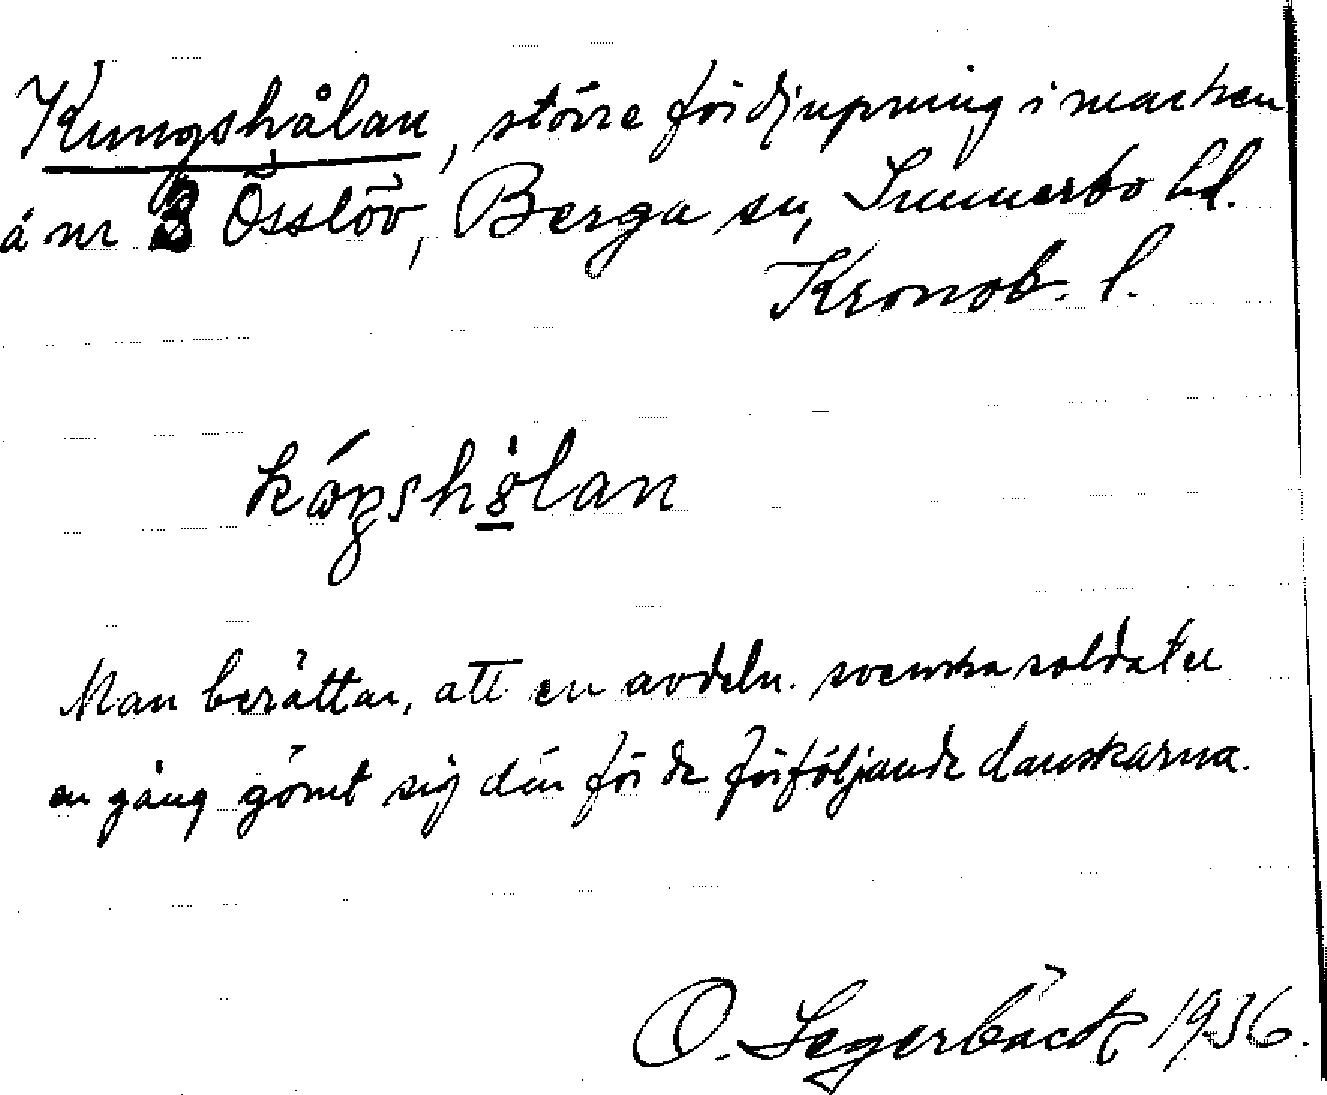 Kungshålan, större fördjupning i marken
å nr 3 Össlöv, Berga sn, Sunnerbo hd.
Kronob. l.
Man berättar, att en avdeln. svenska soldater
en gång gömt sig där för de förföljande danskarna.
O. Segerbäck 1936.